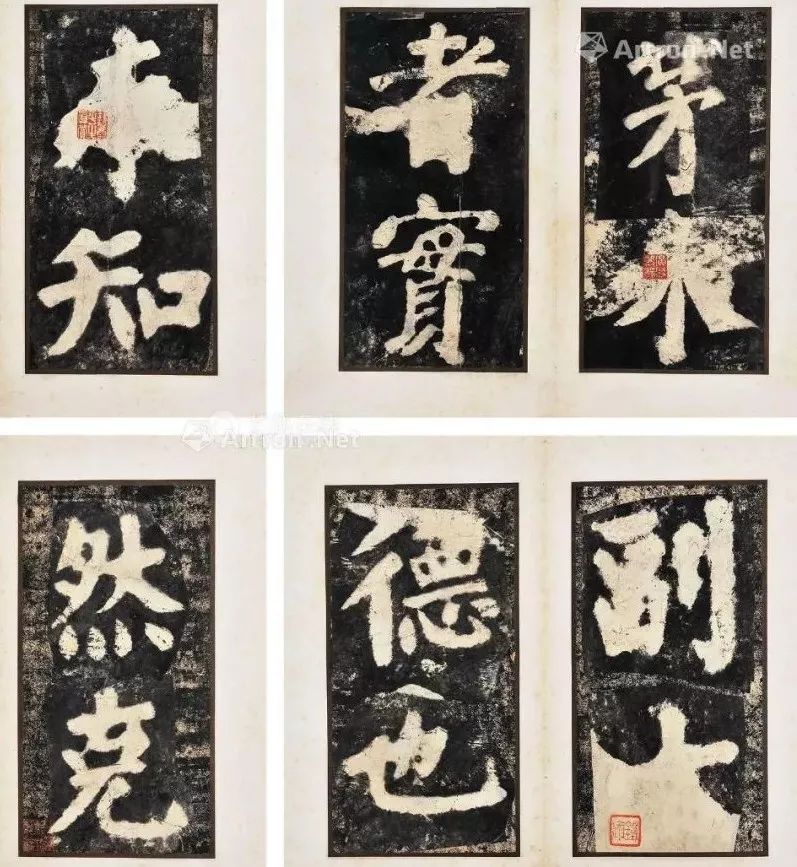 茅
者實
知
副大
德也
然堯
Artron.Net
Artron.Net